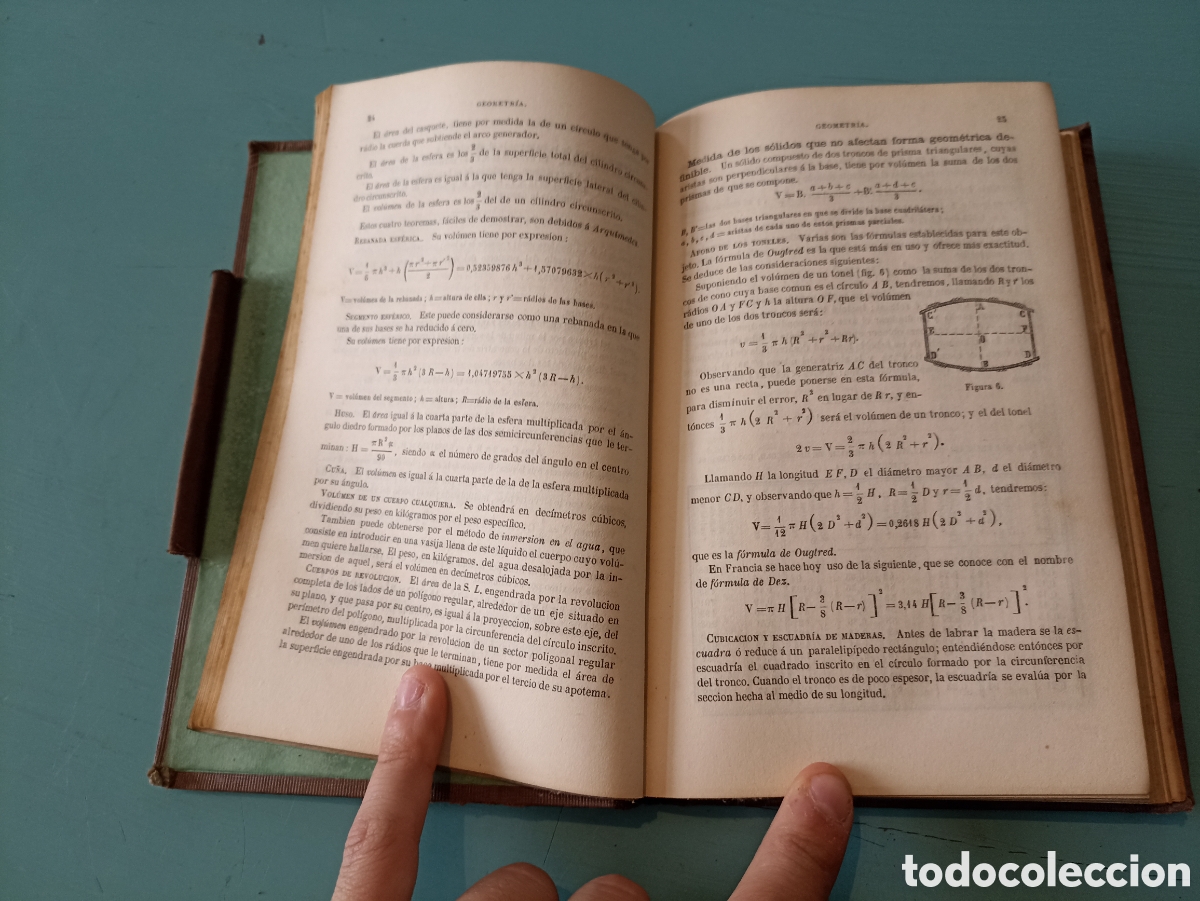 24
GEOMETRÍA.
El área del casquete, tiene por medida la de un círculo que tenga por
rádio la cuerda que subtiende el arco generador.
El área de la esfera es los 2/3 de la superficie total del cilindro circuns-
crito.
El área de la esfera es igual á la que tenga la superficie lateral del cilin-
dro circunscrito.
El volúmen de la esfera es los 2/3 del de un cilindro circunscrito.
Estos cuatro teoremas, fáciles de demostrar, son debidos á Arquímedes
REBANADA ESFÉRICA. Su volúmen tiene por expresion:
V = 1/6 π h³ + h (π r² + π r'² / 2) = 0,52359876 h³ + 1,57079632 × h (r² + r'²).
V = volúmen de la rebanada; h = altura de ella; r y r' = rádios de las bases.
SEGMENTO ESFÉRICO. Este puede considerarse como una rebanada en la que
una de sus bases se ha reducido á cero.
Su volúmen tiene por expresion:
V = 1/3 π h² (3 R — h) = 1,04719755 × h² (3 R — h).
V = volúmen del segmento; h = altura; R = rádio de la esfera.
HUSO. El área igual á la cuarta parte de la esfera multiplicada por el án-
gulo diedro formado por los planos de las dos semicircunferencias que le ter-
minan: H = π R² n / 90, siendo α el número de grados del ángulo en el centro
CUÑA. El volúmen es igual á la cuarta parte de la de la esfera multiplicada
por su ángulo.
VOLÚMEN DE UN CUERPO CUALQUIERA. Se obtendrá en decímetros cúbicos,
dividiendo su peso en kilógramos por el peso específico.
Tambien puede obtenerse por el método de inmersion en el agua, que
consiste en introducir en una vasija llena de este líquido el cuerpo cuyo volú-
men quiere hallarse. El peso, en kilógramos, del agua desalojada por la in-
mersion de aquel, será el volúmen en decímetros cúbicos.
CUERPOS DE REVOLUCION. El área de la S. L. engendrada por la revolucion
completa de los lados de un polígono regular, alrededor de un eje situado en
su plano, y que pasa por su centro, es igual á la proyeccion, sobre este eje, del
perímetro del polígono, multiplicada por la circunferencia del círculo inscrito.
El volúmen engendrado por la revolucion de un sector poligonal regular
alrededor de uno de los rádios que le terminan, tiene por medida el área de
la superficie engendrada por su base multiplicada por el tercio de su apotema.
GEOMETRÍA.
25
Medida de los sólidos que no afectan forma geométrica de-
finible. Un sólido compuesto de dos troncos de prisma triangulares, cuyas
aristas son perpendiculares á la base, tiene por volúmen la suma de los dos
prismas de que se compone.
V = B. a + b + c / 3 + B'. a + d + c / 3.
B, B' = las dos bases triangulares en que se divide la base cuadrilátera;
a, b, c, d = aristas de cada uno de estos prismas parciales.
AFORO DE LOS TONELES. Varias son las fórmulas establecidas para este ob-
jeto. La fórmula de Ougtred es la que está más en uso y ofrece más exactitud.
Se deduce de las consideraciones siguientes:
Suponiendo el volúmen de un tonel (fig. 6) como la suma de los dos tron-
cos de cono cuya base comun es el círculo A B, tendremos, llamando R y r los
rádios O A y F C y h la altura O F, que el volúmen
de uno de los dos troncos será:
v = 1/3 π h (R² + r² + Rr).
Observando que la generatriz A C del tronco
no es una recta, puede ponerse en esta fórmula,
para disminuir el error, R² en lugar de R r, y en-
tónces 1/3 π h (2 R² + r²) será el volúmen de un tronco; y el del tonel
C' A C
E F
B
D' B D
Figura 6.
2 v = V = 2/3 π h (2 R² + r²).
Llamando H la longitud E F, D el diámetro mayor A B, d el diámetro
menor C D, y observando que h = 1/2 H, R = 1/2 D y r = 1/2 d, tendremos:
V = 1/12 π H (2 D² + d²) = 0,2618 H (2 D² + d²),
que es la fórmula de Ougtred.
En Francia se hace hoy uso de la siguiente, que se conoce con el nombre
de fórmula de Dez.
V = π H [R — 3/8 (R — r)]² = 3,14 H [R — 3/8 (R — r)]².
CUBICACION Y ESCUADRÍA DE MADERAS. Antes de labrar la madera se la es-
cuadra ó reduce á un paralelipípedo rectángulo; entendiéndose entónces por
escuadría el cuadrado inscrito en el círculo formado por la circunferencia
del tronco. Cuando el tronco es de poco espesor, la escuadría se evalúa por la
seccion hecha al medio de su longitud.
todocoleccion